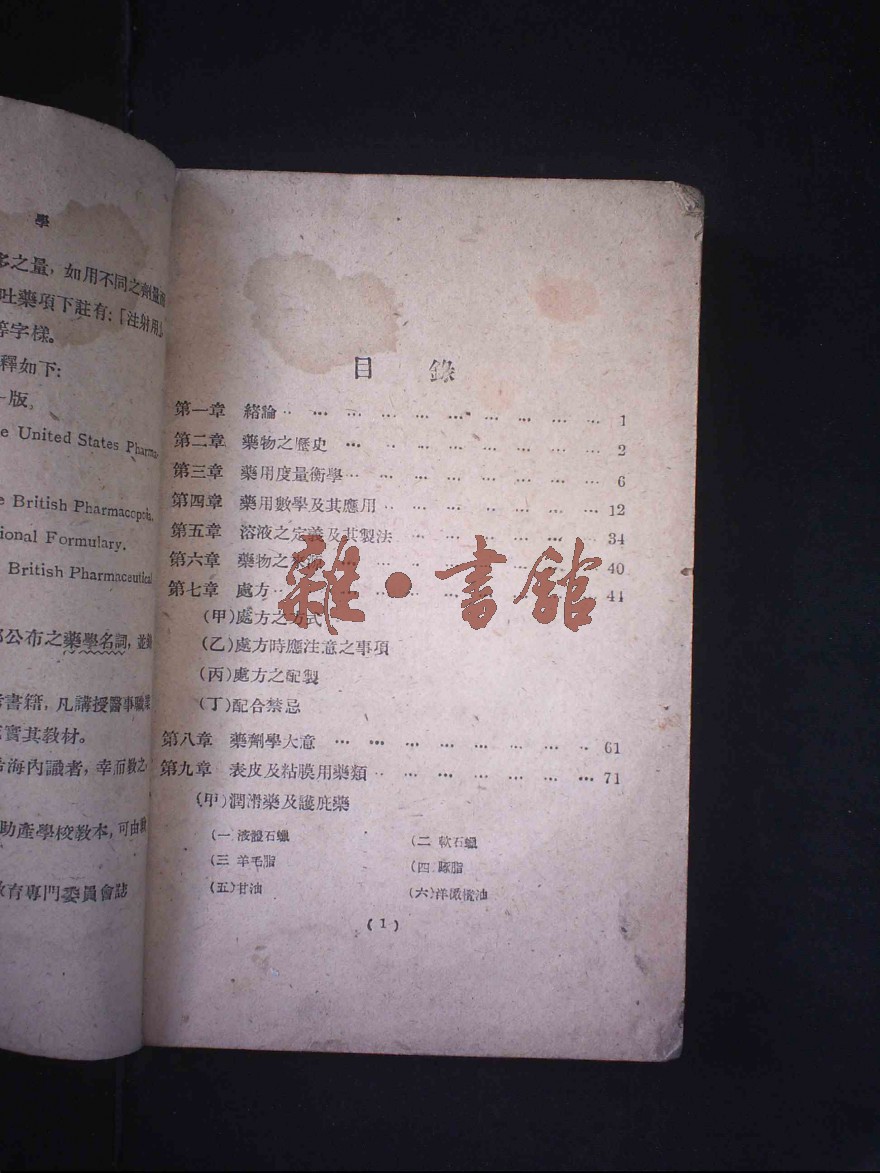 學
多之量，如用不同之劑量
吐藥項下註有：「注射用」
等字樣。
釋如下：
一版。
e United States Pharma-
e British Pharmacopœia.
ional Formulary.
British Pharmaceutical
部公布之藥學名詞，並
書籍，凡講授醫事職業
實其敎材。
海內識者，幸而敎之。
助產學校敎本，可由
敎育專門委員會誌
目 錄
第一章 緒論 ‥ … … … … … … … … … 1
第二章 藥物之歷史 … … … … … … … … 2
第三章 藥用度量衡學 … … … … … … … … 6
第四章 藥用數學及其應用 ‥ … … … … … … 12
第五章 溶液之定義及其製法 … … … … … … 34
第六章 藥物之來源 … … … … … … … … 40
第七章 處方 … … … … … … … … … 41
(甲)處方之方式
(乙)處方時應注意之事項
(丙)處方之配製
(丁)配合禁忌
第八章 藥劑學大意 … … … … … … … ‥ 61
第九章 表皮及粘膜用藥類 ‥ … … … … … … 71
(甲)潤滑藥及護庇藥
(一 液體石蠟 (二 軟石蠟
(三 羊毛脂 (四 豚脂
(五)甘油 (六)洋橄欖油
( 1 )
雜·書館